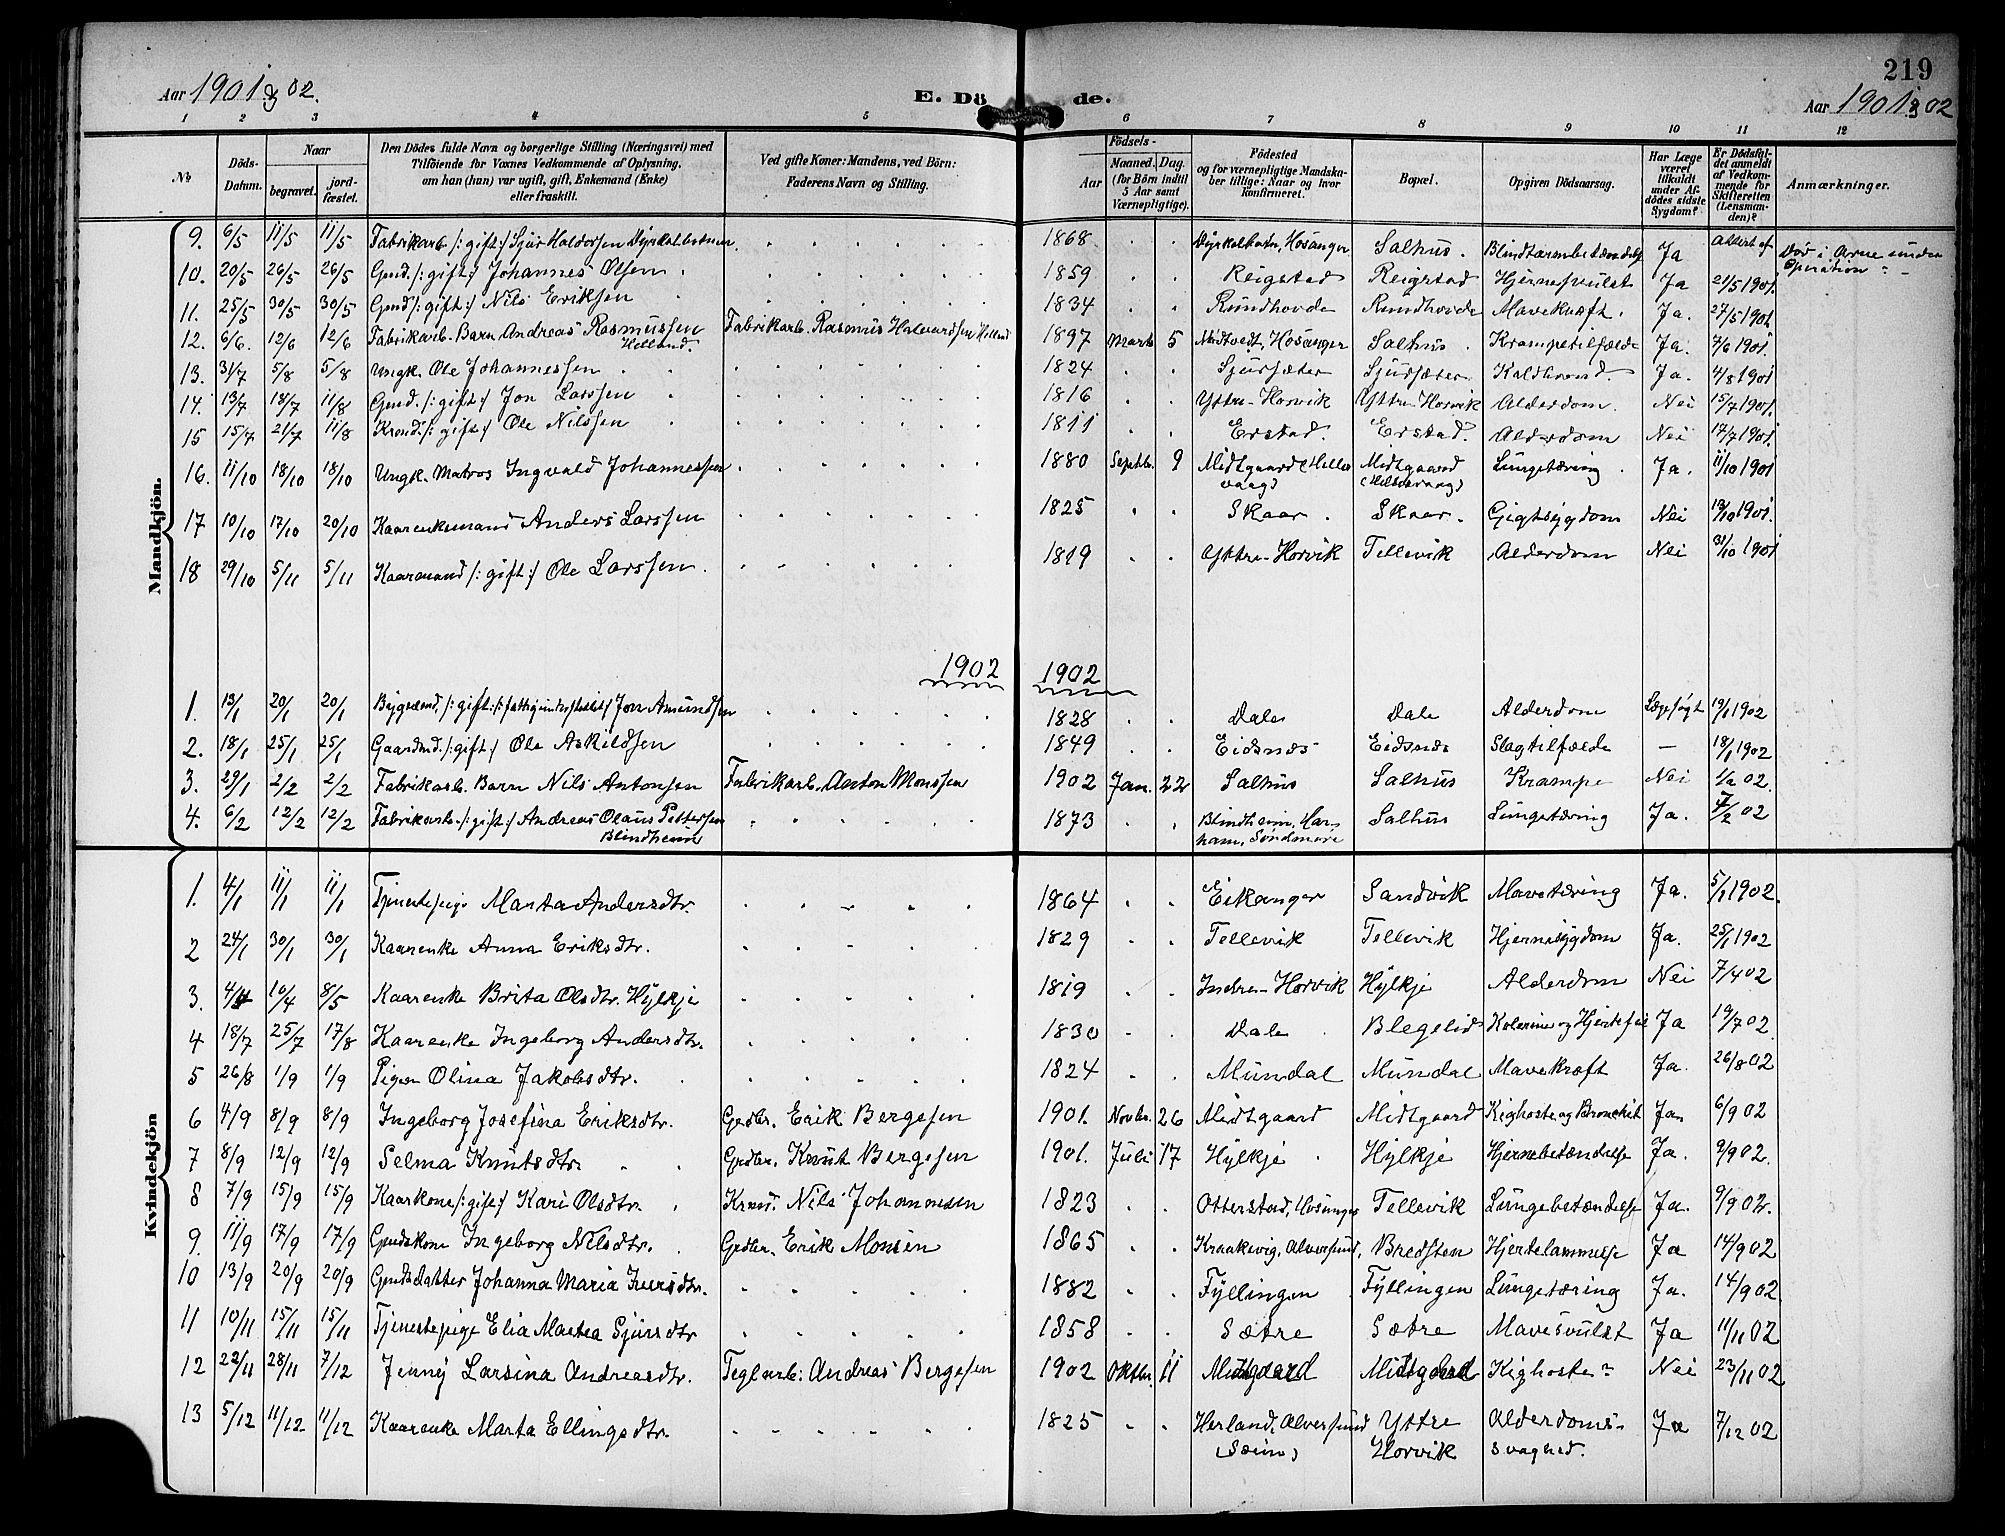 219
Aar 1901 & 02.
E. Dö de.
Aar 1901 & 02
1 2 3 4 5 6 7 8 9 10 11 12
No
Döds-Datum.
Naar
begravet.
jord-fæstet.
Den Dödes fulde Navn og borgerlige Stilling (Næringsvei) med
Tilföiende for Voxnes Vedkommende af Oplysning,
om han (hun) var ugift, gift, Enkemand (Enke)
eller fraskilt.
Ved gifte Koner: Mandens, ved Börn:
Faderens Navn og Stilling.
Födsels-
Aar
Maaned. Dag.
(for Börn indtil
5 Aar samt
Værnepligtige).
Födested
og for værnepligtige Mandska-
ber tillige: Naar og hvor
konfirmeret.
Bopæl.
Opgiven Dödsaarsag.
Har Læge
været
tilkaldt
under Af-
dödes sidste
Sygdom?
Er Dödsfal-
det anmeldt
af Vedkom-
mende for
Skifteretten
(Lensman-
den)?
Anmærkninger.
Mandkjön.
9. 6/5 11/5 11/5 Fabrikarb. /: gift :/ Sjur Haldorsen Dyrkolbotnen. 1868 Dyrkolbotn, Hosanger Salhus. Blindtarmbetændelse Ja Död i Arne under Operation
10. 20/5 26/5 26/5 Gmd. /: gift :/ Johannes Olsen 1859 Reigstad Reigstad Hjernesvulst Ja 21/5 1901.
11. 25/5 30/5 30/5 Gmd /: gift :/ Nils Eriksen 1834 Rundhovde Rundhovde Mavekræft. Ja. 27/5 1901
12. 6/6. 12/6 12/6 Fabrikarb. Barn Andreas Rasmussen Helland. Fabrikarb. Rasmus Halvardsen Helland 1897 Marts 5 Midtvedt, Hosanger Salhus. Krampetilfælde Ja. 7/6 1901.
13. 31/7 5/8 5/8 Ungk. Ole Johannessen 1824 Sjursæter Sjursæter Koldbrand. Ja. 4/8 1901
14. 13/7 18/7 11/8 Gmd. /: gift :/ Jon Larssen 1816 Yttre-Horvik Yttre-Horvik Alderdom. Nei 15/7 1901.
15 15/7 21/7 11/8 Krmd. /: gift :/ Ole Nilssen 1811 Erstad. Erstad. Alderdom Nei 17/7 1901.
16. 11/10 18/10 18/10 Ungk. Matros Ingvald Johannessen 1880 Septbr. 9 Midtgaard (Hellesvaag) Midtgaard (Hellesvaag) Lungetæring. Ja. 11/10 1901
17 10/10 17/10 20/10 Kaarenkemand Anders Larssen 1825 Skaar. Skaar. Gigtsygdom Nei 19/10 1901.
18 29/10 5/11 5/11 Kaarmand /: gift :/ Ole Larssen. 1819 Yttre-Horvik Tellevik Alderdom Nei 31/10 1901
1902 1902
1. 13/1 20/1 20/1 Bygselmd. /: gift :/ /: fattigunderstøttet :/ Jon Amundsen 1828 Dale Dale Alderdom Lægesøgt 19/1 1902
2. 18/1 25/1 25/1 Gaardmd. /: gift :/ Ole Askildsen 1849 Eidsnes Eidsnes Slagtilfælde — 18/1 1902
3. 29/1 2/2 2/2 Fabrikarb. Barn Nils Antonsen Fabrikarb. Anton Monssen 1902 Jan. 22 Salhus Salhus Krampe Nei 1/2 02.
4. 6/2 12/2 12/2 Fabrikarb. /: gift :/ Andreas Olaus Pettersen Blindheim 1873 Blindheim, Harham, Söndmøre Salhus Lungetæring Ja. 7/2 02
Kvindekjön
1. 4/1 11/1 11/1 Tjenestepige Marta Andersdtr. 1864 Eikanger Sandvik Mavetæring Ja. 5/1 1902.
2 24/1 30/1 30/1 Kaarenke Anna Eriksdtr. 1829 Tellevik Tellevik Hjernesygdom Ja. 25/1 1902
3. 4/4 10/4 8/5 Kaarenke Brita Olsdtr. Hylkje 1819 Indre-Horvik Hylkje Alderdom Nei 7/4 02
4 18/7 25/7 17/8 Kaarenke Ingeborg Andersdtr. 1830 Dale Blegelid Kolerine og Hjertefeil Ja 19/7 02
5 26/8 1/9 1/9 Pigen Olina Jakobsdtr. 1824 Mundal Mundal Mavekræft Ja. 26/8 02
6 4/9 8/9 8/9 Ingeborg Josefina Eriksdtr. Grdbr. Erik Bergesen 1901. Novbr. 26 Midtgaard Midtgaard Kighoste og Bronchit Ja. 6/9 02
7 8/9 12/9 12/9 Selma Knutsdtr. Grdbr. Knut Bergesen 1901. Juli 17 Hylkje Hylkje Hjernebetændelse Ja. 9/9 02.
8 7/9 15/9 15/9 Kaarkone /: gift :/ Kari Olsdtr. Krmd. Nils Johannesen 1823 Otterstad, Hosanger Tellevik Lungebetændelse Ja. 9/9 02.
9. 11/9 17/9 17/9 Gmdskone Ingeborg Nilsdtr. Grdbr. Erik Monsen 1865 Kraakevig, Alversund, Bredsten Hjertelammelse Ja 14/9 02
10 13/9 20/9 20/9 Gmdsdatter Johanna Maria Iversdtr. 1882 Fyllingen Fyllingen Lungetæring Ja. 14/9 02
11 10/11 15/11 15/11 Tjenestepige Elia Martea Sjursdtr 1858 Sætre Sætre Mavesvulst Ja 11/11 02
12 22/11 28/11 7/12 Jenny Larsina Andreasdtr. Teglarb: Andreas Bergesen 1902 Oktbr. 11 Midtgaard Midtgaard Kighoste? Nei 23/11 02
13 5/12 11/12 11/12 Kaarenke Marta Ellingsdtr. 1825 Herland, Alversund (Seim) Yttre Horvik Alderdoms-svaghed. Ja 7/12 02